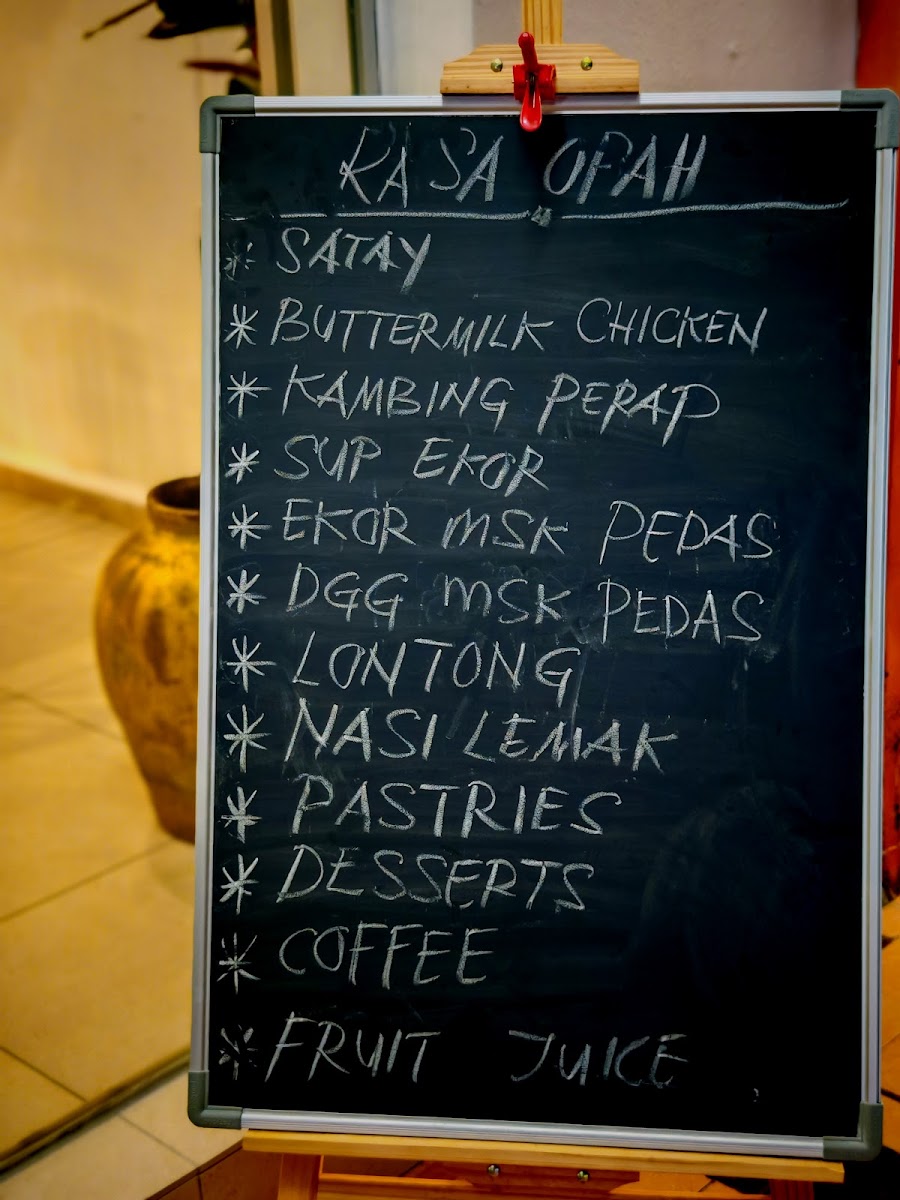 RASA OPAH
* SATAY
* BUTTERMILK CHICKEN
* KAMBING PERAP
* SUP EKOR
* EKOR MSK PEDAS
* DGG MSK PEDAS
* LONTONG
* NASI LEMAK
* PASTRIES
* DESSERTS
* COFFEE
* FRUIT JUICE